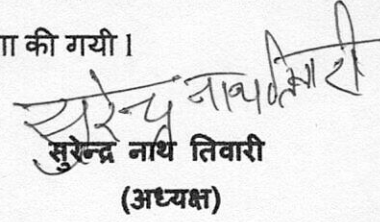 ा की गयी।
सुरेन्द्र नाथ तिवारी
सुरेन्द्र नाथ तिवारी
(अध्यक्ष)